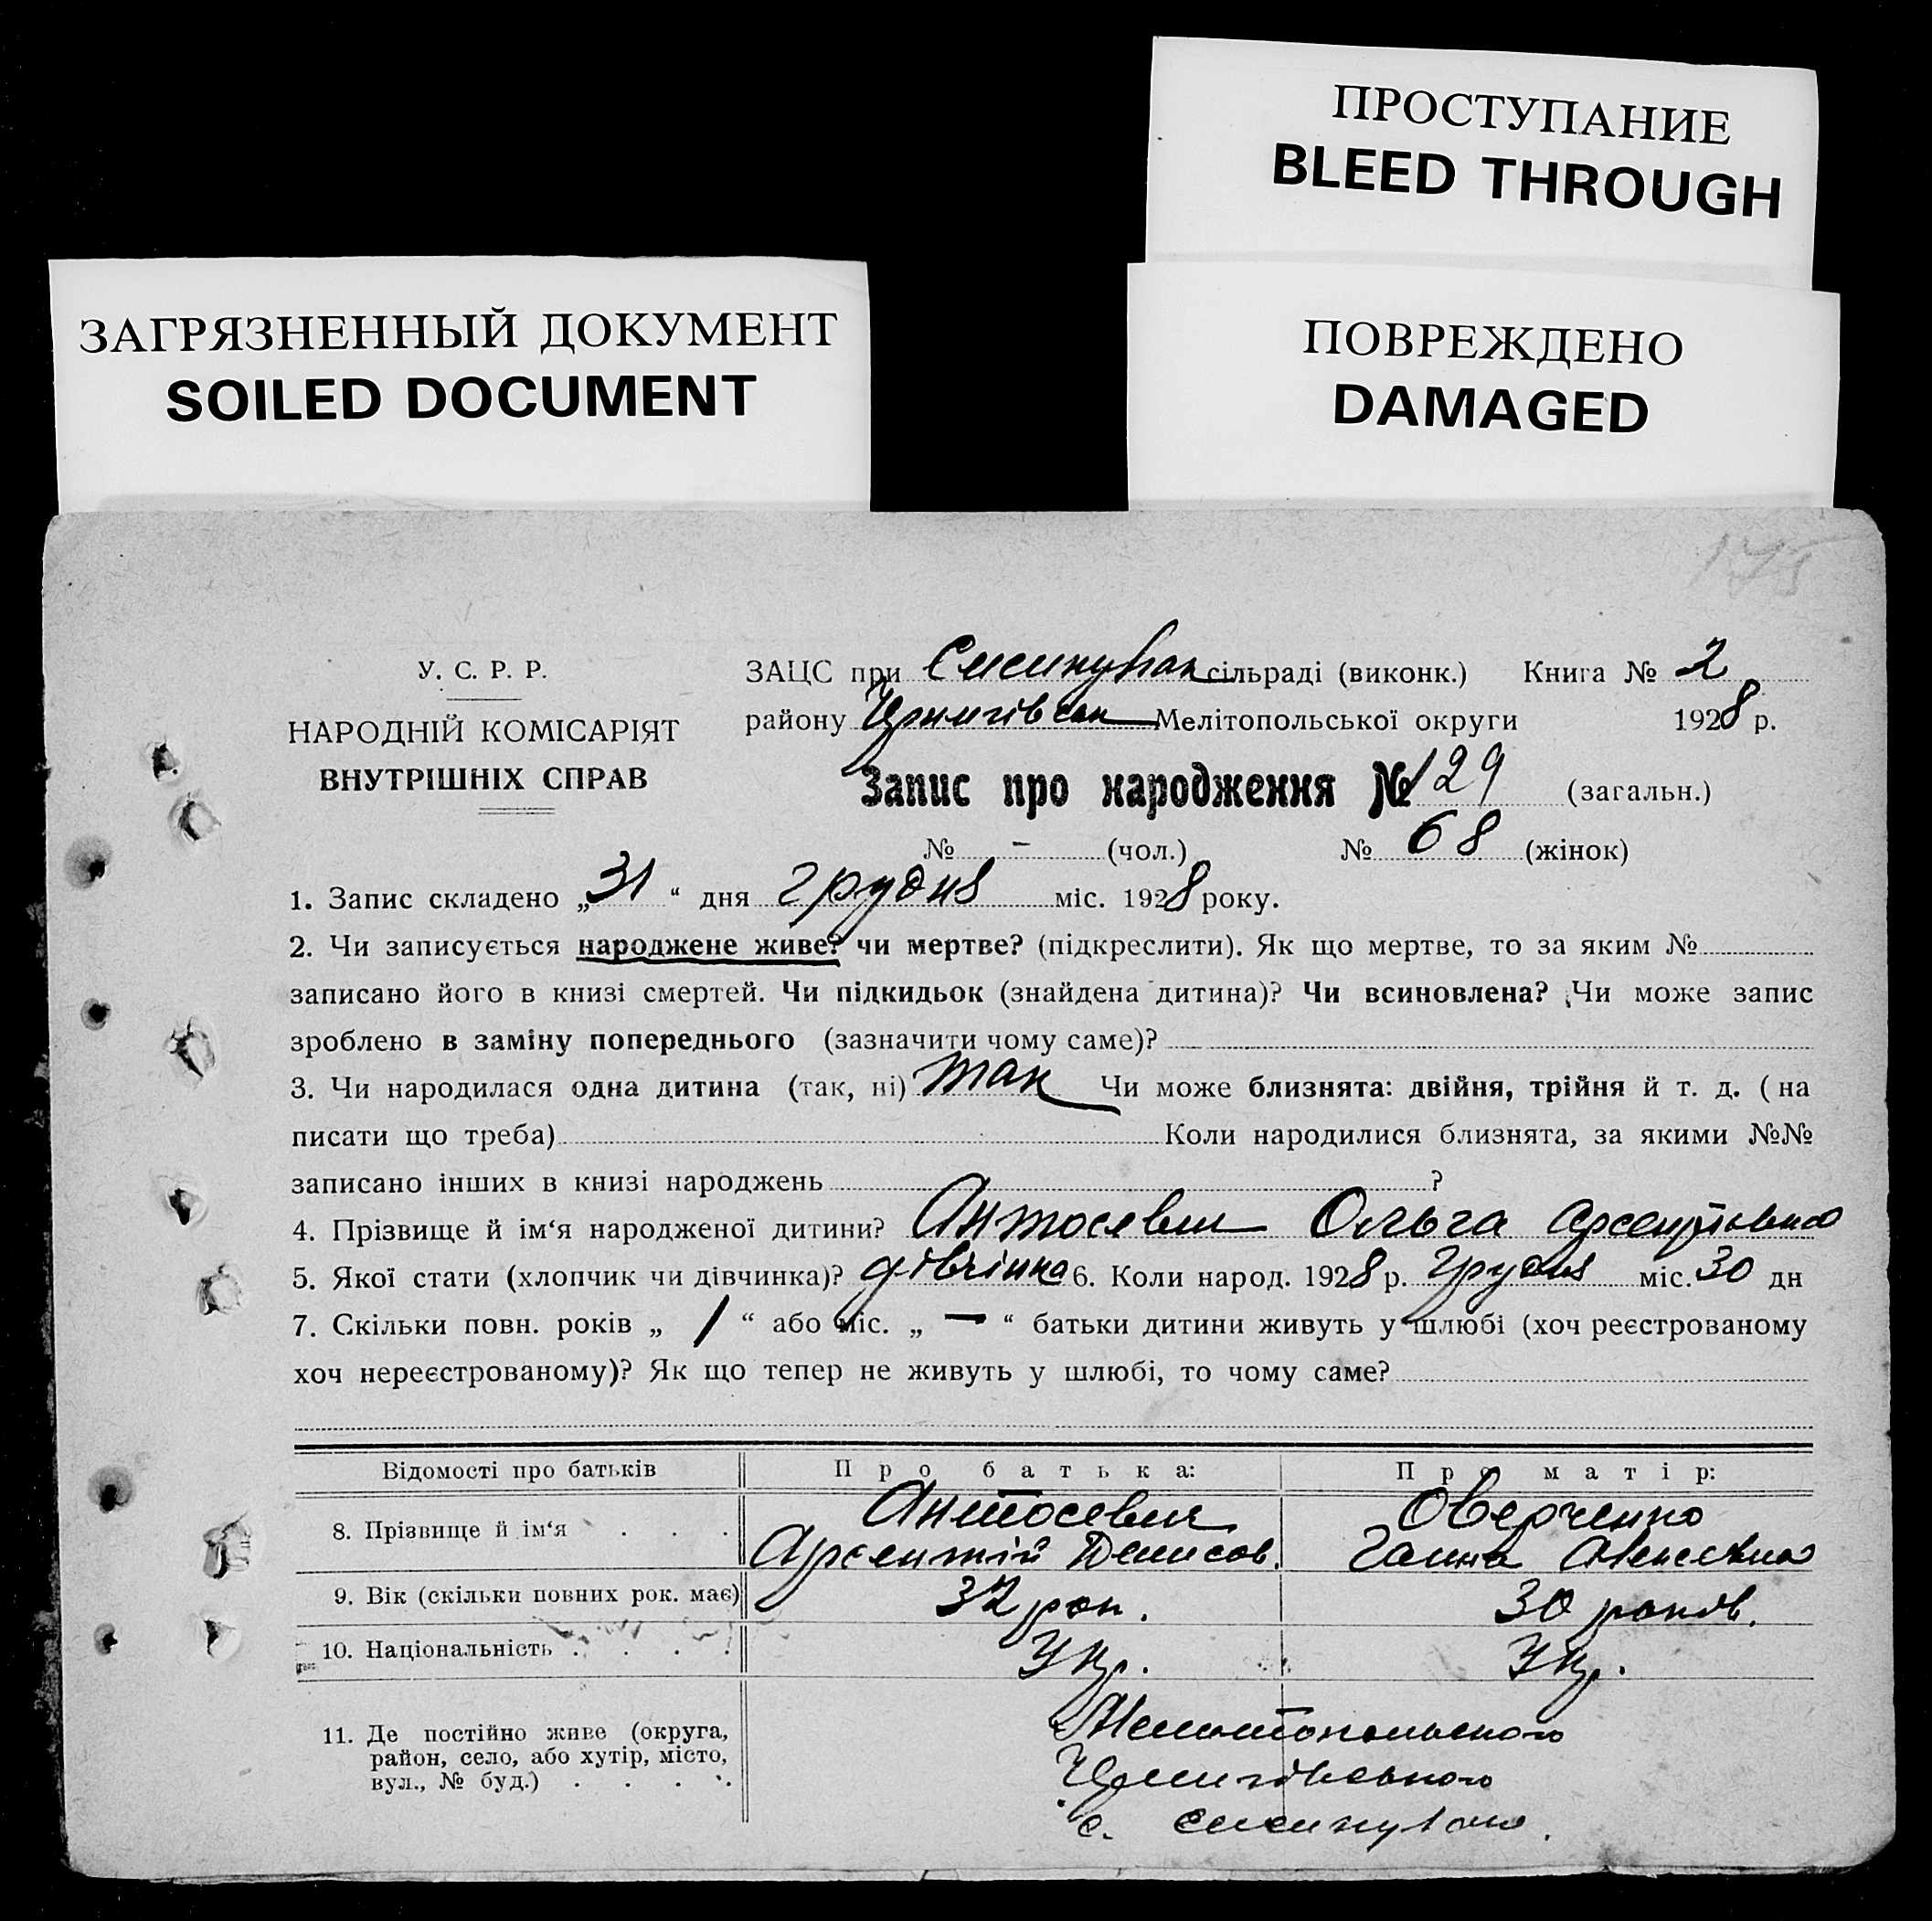 ПРОСТУПАНИЕ
BLEED THROUGH
ЗАГРЯЗНЕННЫЙ ДОКУМЕНТ
SOILED DOCUMENT
ПОВРЕЖДЕНО
DAMAGED
175
У. С. Р. Р.
НАРОДНІЙ КОМІСАРІЯТ
ВНУТРІШНІХ СПРАВ
ЗАЦС при сільраді (виконк.) Книга № 2
району Чернигівськ Мелітопольської округи 1928 р.
Запис про народження № 129 (загальн.)
№ - (чол.) № 68 (жінок)
1. Запис складено „31“ дня грудня міс. 1928 року.
2. Чи записується народжене живе? чи мертве? (підкреслити). Як що мертве, то за яким №
записано його в книзі смертей. Чи підкидьок (знайдена дитина)? Чи всиновлена? Чи може запис
зроблено в заміну попереднього (зазначити чому саме)?
3. Чи народилася одна дитина (так, ні) так Чи може близнята: двійня, трійня й т. д. (на
писати що треба) Коли народилися близнята, за якими №№
записано інших в книзі народжень ?
4. Прізвище й ім‘я народженої дитини? Антосевич Ольга
5. Якої стати (хлопчик чи дівчинка)? дівчинка 6. Коли народ. 1928 р. грудня міс. 30 дн
7. Скільки повн. років „ 1 “ або міс. „ — “ батьки дитини живуть у шлюбі (хоч реєстрованому
хоч нереєстрованому)? Як що тепер не живуть у шлюбі, то чому саме?
Відомості про батьків Про батька: Про матір:
8. Прізвище й ім‘я . . . Антосевич Оверченко
Арсентій Денисов. Ганна
9. Вік (скільки повних рок. має) 32 рок. 30 років.
10. Національність . . . . Укр. Укр.
11. Де постійно живе (округа,
район, село, або хутір, місто,
вул., № буд.) . . . .
Мелитопольского
Чернигівського
с.